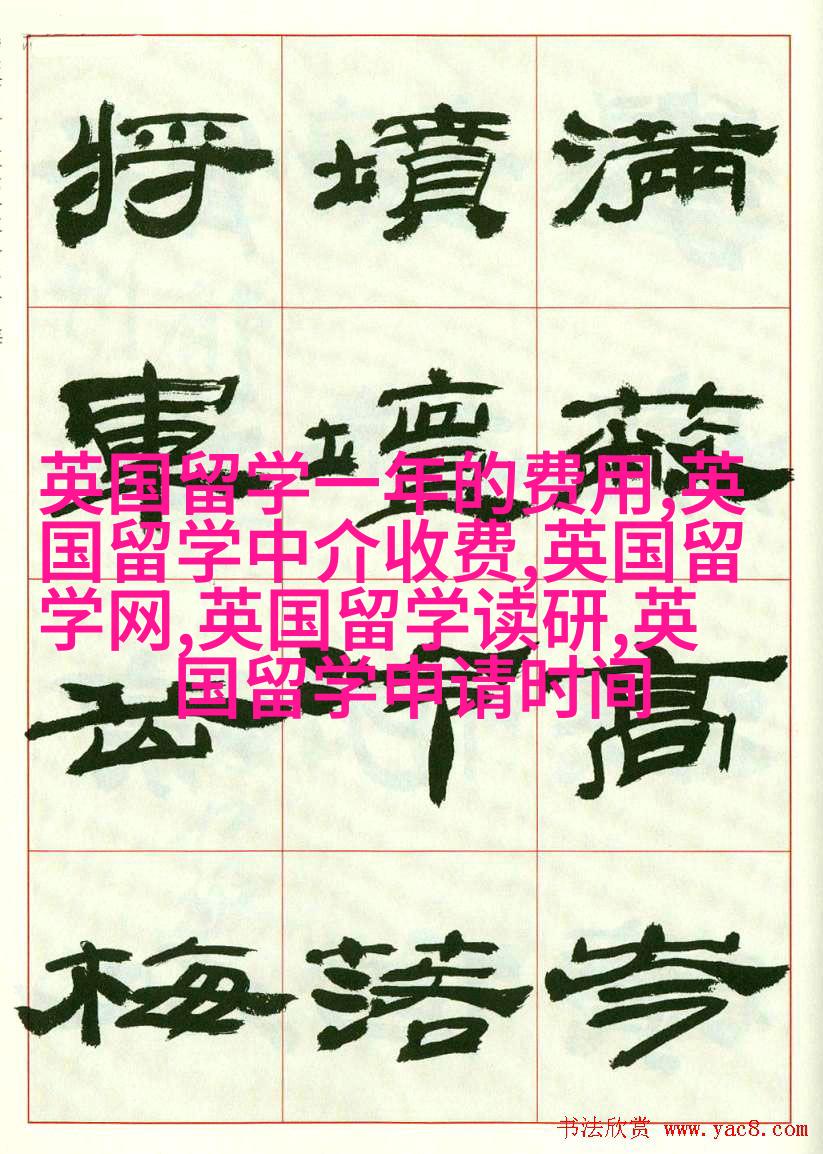 滿高岑
墳壇落
將軍梅
英国留学一年的费用,英
国留学中介收费,英国留
学网,英国留学读研,英
国留学申请时间
书法欣赏 www.yac8.com